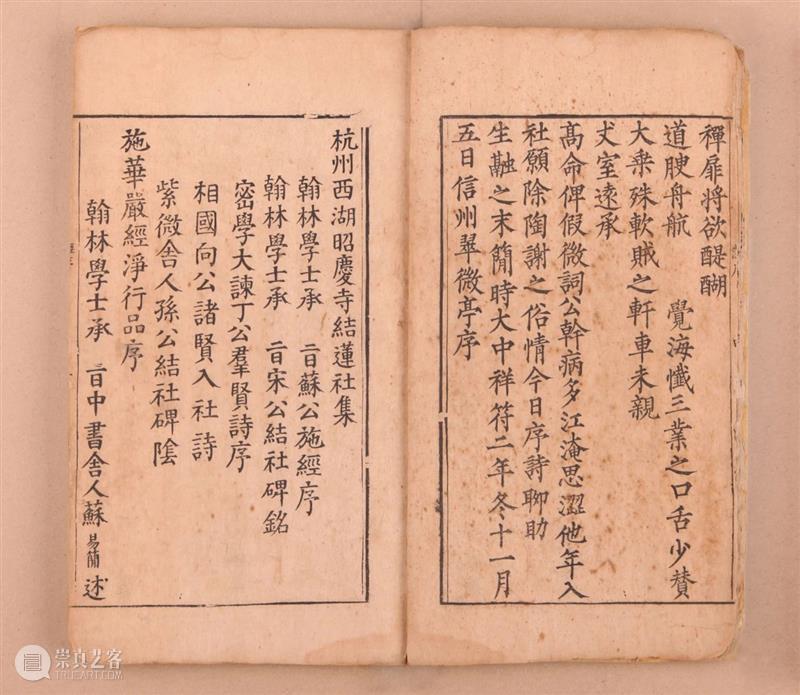 禪扉将欲醍醐
道腴舟航 覺海懺三業之口舌少賛
大乗殊軟賊之軒車未親
丈室遠承
髙命俾假微詞公幹病多江淹思澀他年入
社願除陶謝之俗情今日序詩聊助
生融之末簡時大中祥符二年冬十一月
五日信州翠微亭序
杭州西湖昭慶寺結蓮社集
翰林學士承 㫖蘇公施經序
翰林學士承 㫖宋公結社碑銘
密學大諫丁公羣賢詩序
相國向公諸賢入社詩
紫微舍人孫公結社碑陰
施華嚴經淨行品序
翰林學士承 㫖中書舍人蘇易簡述
崇真艺客
TRUEART.COM